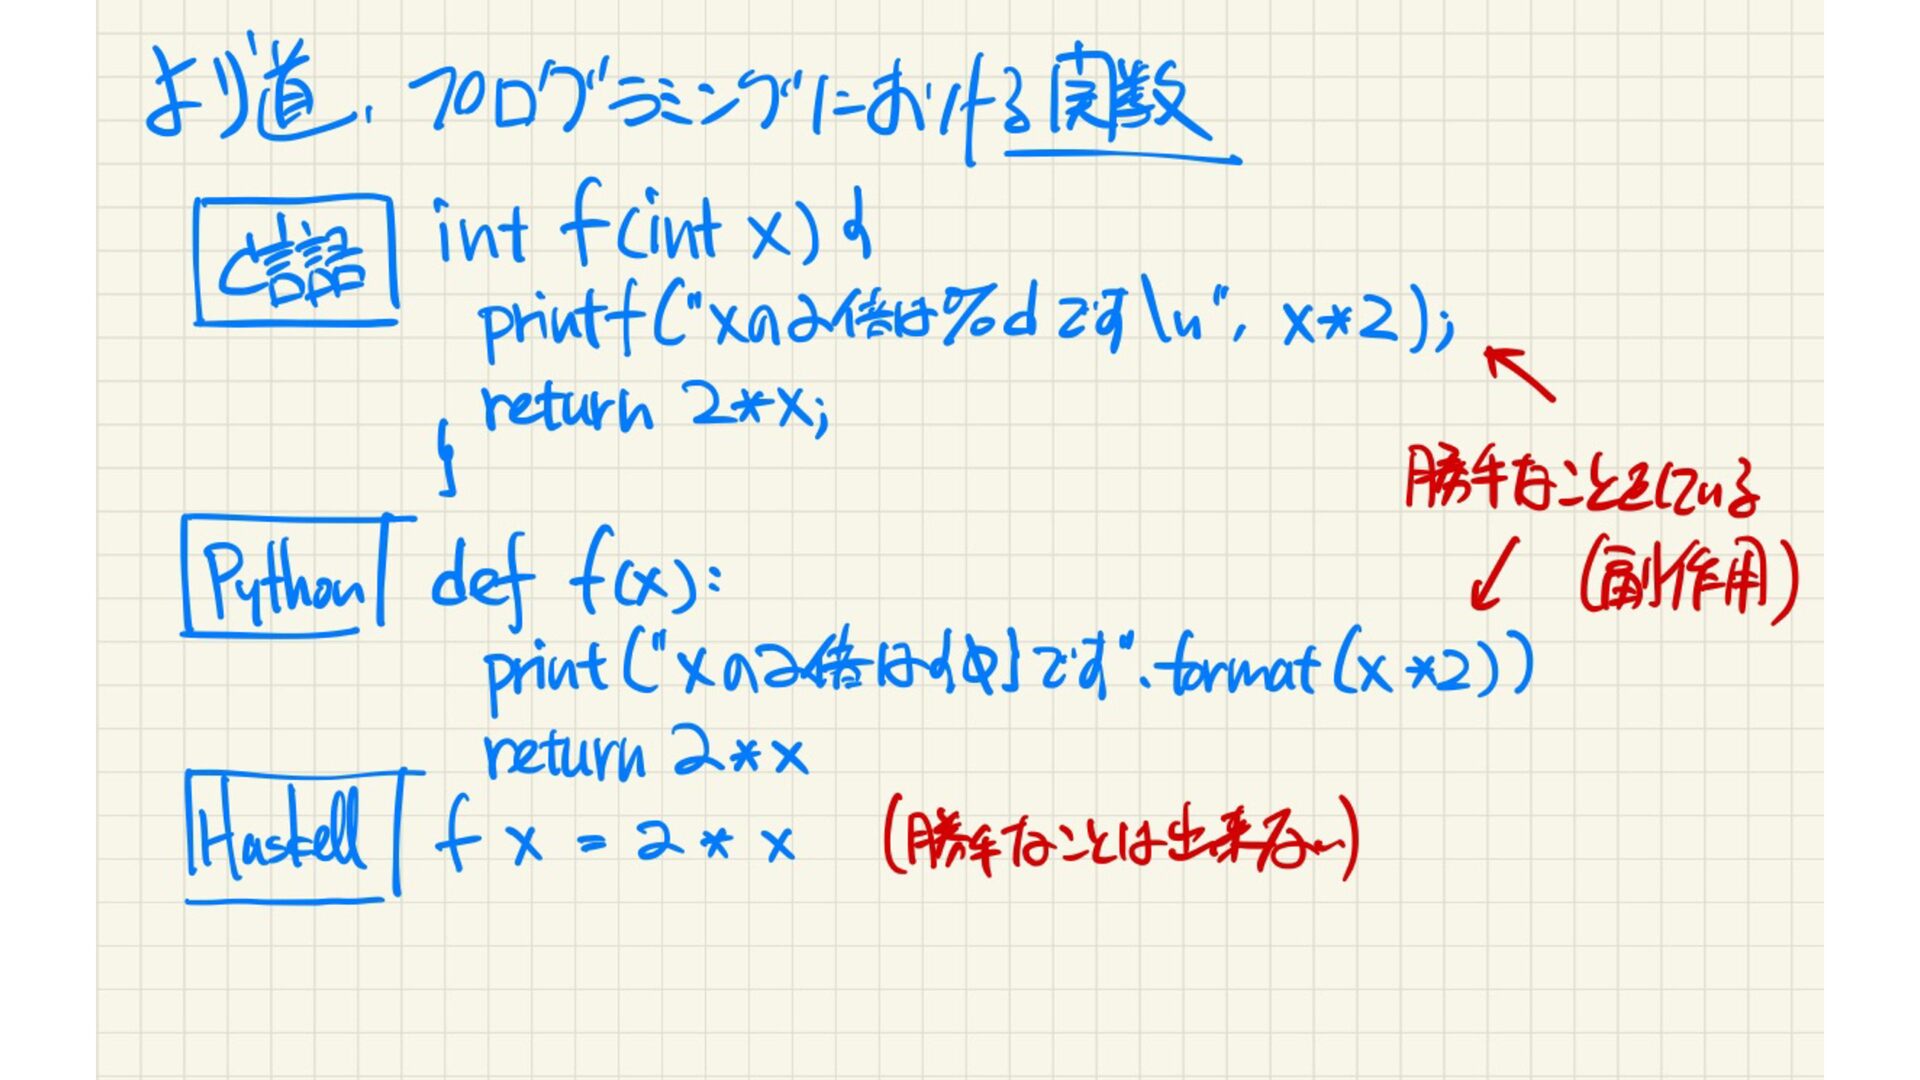 より道. プログラミングにおける関数
C言語 int f(int x) {
printf("xの2倍は%dです\n", x*2);
return 2*x;
}
勝手なことをしている
(副作用)
Python def f(x):
print("xの2倍は{0}です".format(x*2))
return 2*x
Haskell f x = 2 * x (勝手なことは出来ない)